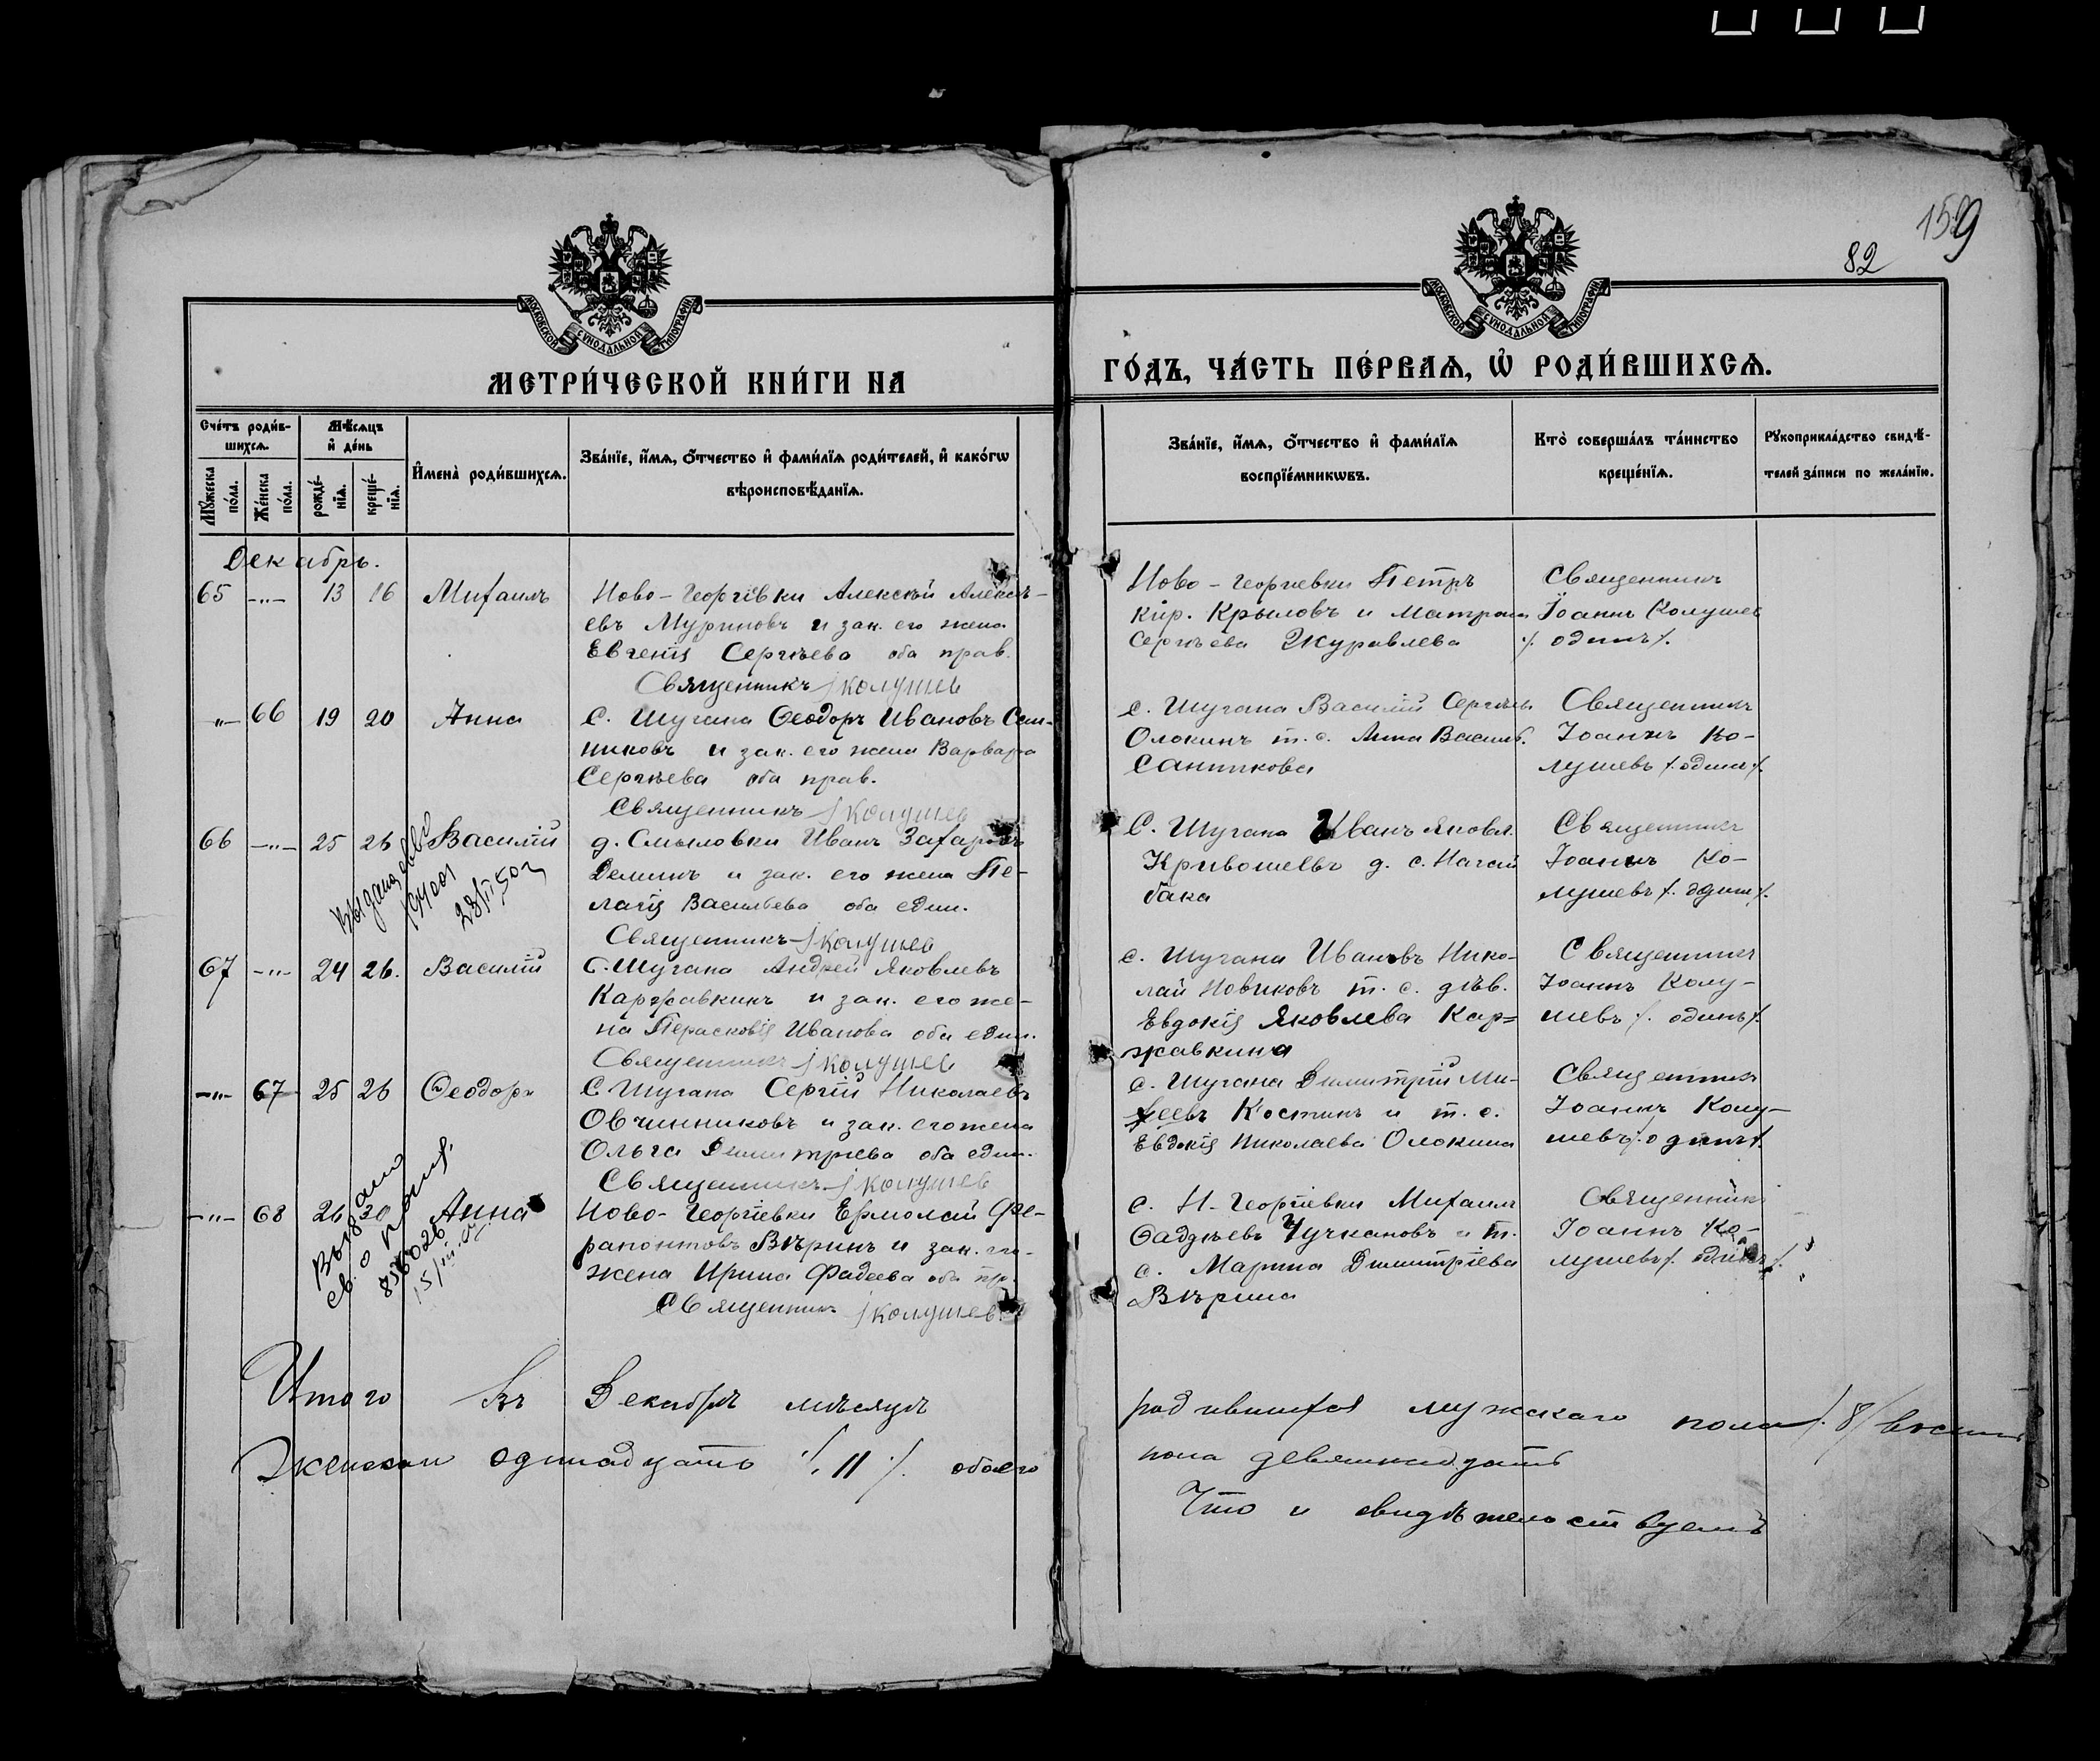 159
82
МОСКОВСКОЙ СѴНОДАЛЬНОЙ ТИПОГРАФІИ
МОСКОВСКОЙ СѴНОДАЛЬНОЙ ТИПОГРАФІИ
МЕТРИ́ЧЕСКОЙ КНИ́ГИ НА
ГО́ДЪ, ЧА́СТЬ ПЕ́РВАѦ, Ѡ҆ РОДИ́ВШИХСѦ.
Сче́тъ роди́в-
шихсѧ.
Мѣ́сѧцъ
и҆ де́нь
Мꙋ́жеска по́ла.
Же́нска по́ла.
рожде́-нїѧ.
креще́-нїѧ.
И҆мена̀ роди́вшихсѧ.
Зва́нїе, и҆́мѧ, ѻ҆́тчество и҆ фами́лїѧ роди́телей, и҆ како́гѡ
вѣроисповѣ́данїѧ.
Зва́нїе, и҆́мѧ, ѻ҆́тчество и҆ фами́лїѧ
воспрїе́мникѡвъ.
Кто̀ соверша́лъ та́инство
креще́нїѧ.
Рꙋкоприкла́дство свидѣ́-
телей за́писи по жела́нїю.
Декабрь.
65 -"- 13 16 Михаилъ Ново-Георгіевки Алексѣй Алексѣ-
евъ Муриновъ и зак. его жена
Евгенія Сергѣева оба прав.
Священникъ І Колушев
Ново-Георгіевки Петръ
Кир. Крыловъ и Матрона
Сергѣева Журавлева
Священникъ
Іоаннъ Колушев
/. одинъ /.
-"- 66 19 20 Анна С. Шугана Ѳеодоръ Ивановъ Сан-
никовъ и зак. его жена Варвара
Сергѣева оба прав.
Священникъ І Колушев
с. Шугана Василій Сергѣевъ
Олокинъ т. с. Анна Васильев.
Санникова
Священникъ
Іоаннъ Ко-
лушевъ /. одинъ /.
66 -"- 25 26 Василій д. Смыловки Иванъ Захаровъ
Деминъ и зак. его жена Пе-
лагія Васильева оба един.
Священникъ І Колушев
Выдана
28/II 50 г
С. Шугана Иванъ Яковл.
Кривошеевъ д. с. Нагай
бака
Священникъ
Іоаннъ Ко-
лушевъ /. один /.
67 -"- 24 26. Василій С. Шугана Андрей Яковлевъ
Каржавкинъ и зак. его же-
на Парасковія Иванова оба един.
Священникъ І Колушев
с. Шугана Ивановъ Нико-
лай Новиковъ т. с. дѣв.
Евдокія Яковлева Кар=
жавкина
Священникъ
Іоаннъ Колу-
шевъ /. одинъ /.
-"- 67 25 26 Ѳеодоръ С Шугана Сергій Николаевъ
Овчинниковъ и зак. его жена
Ольга Димитріева оба един.
Священникъ І Колушев
с. Шугана Димитрій Ми-
хеевъ Костинъ и т. с.
Евдокія Николаева Олокина
Священник
Іоаннъ Колу-
шевъ /. одинъ /.
-"- 68 26 30 Анна Ново-Георгіевки Ермолай Фе-
рапонтовъ Вѣринъ и зак. его
жена Ирина Фадеева оба пр.
Священникъ І Колушев
Выдано
св. о
15/III
с. Н-Георгіевки Михаилъ
Ѳаддѣевъ Чучкановъ и т.
с. Марина Димитріева
Вѣрина
Священникъ
Іоаннъ Ко-
лушевъ /. одинъ /.
Итого въ Декабрѣ мѣсяцѣ родившихся мужскаго пола /. 8 / восемь
Женскаго одинадцать /. 11 /. обоего пола девятнадцать
Что и свидѣтельствуемъ